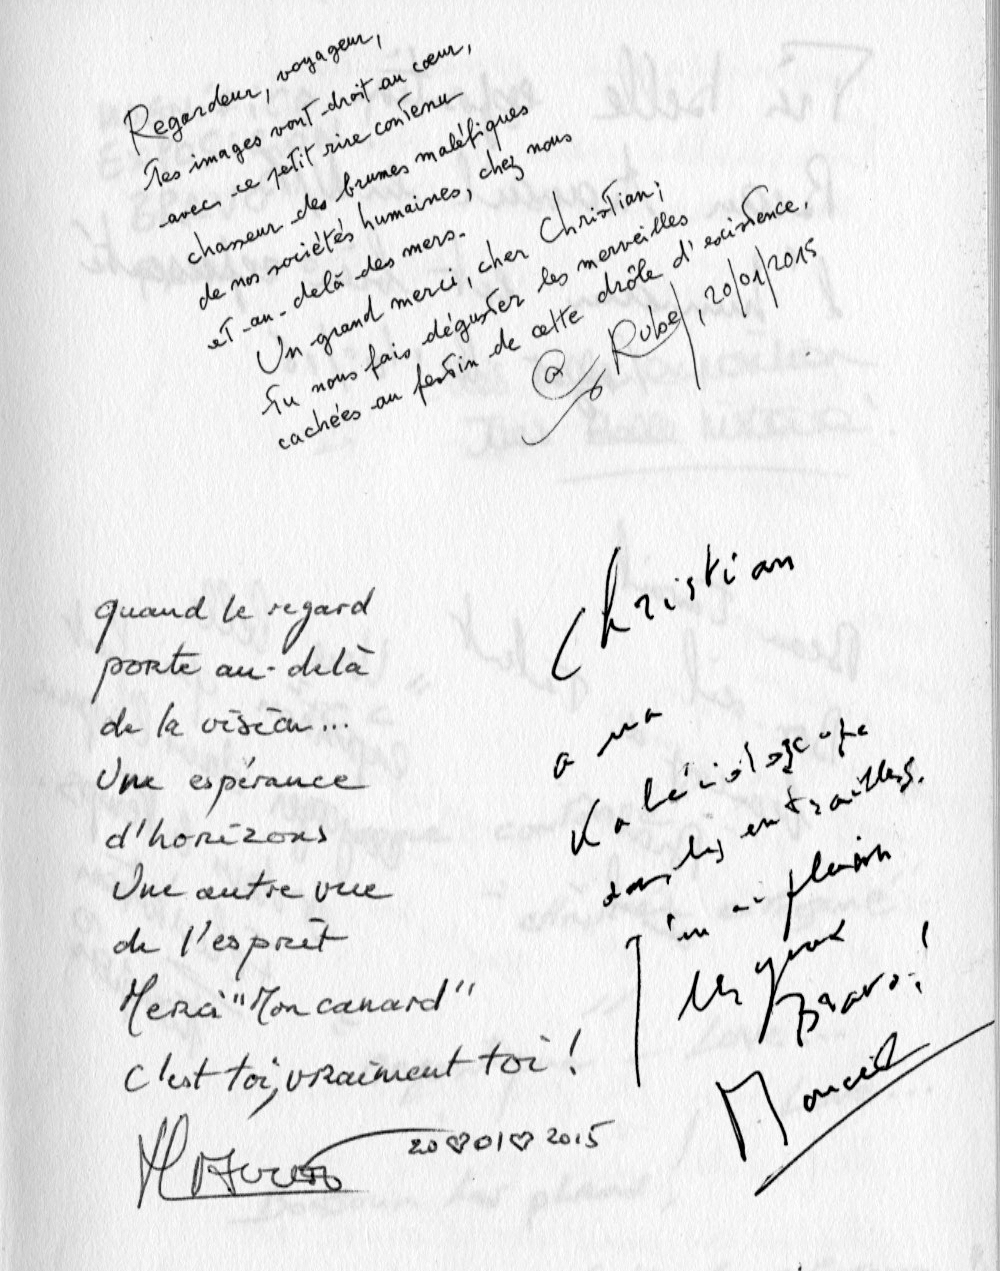 Regardeur, voyageur,
Tes images vont droit au cœur,
avec ce petit rire contenu
chasseur des brumes maléfiques
de nos sociétés humaines, chez nous
et au-delà des mers.
Un grand merci, cher Christian ;
Tu nous fais déguster les merveilles
cachées au festin de cette drôle d'existence.
Rubel, 20/01/2015
quand le regard
porte au-delà
de la vision...
Une espérance
d'horizons
Une autre vue
de l'esprit
Merci "Mon canard"
C'est toi, vraiment toi !
20♡01♡2015
Christian
a un
Kaléidoscope
dans les entrailles.
J'en ai plein
les yeux
Bravo !